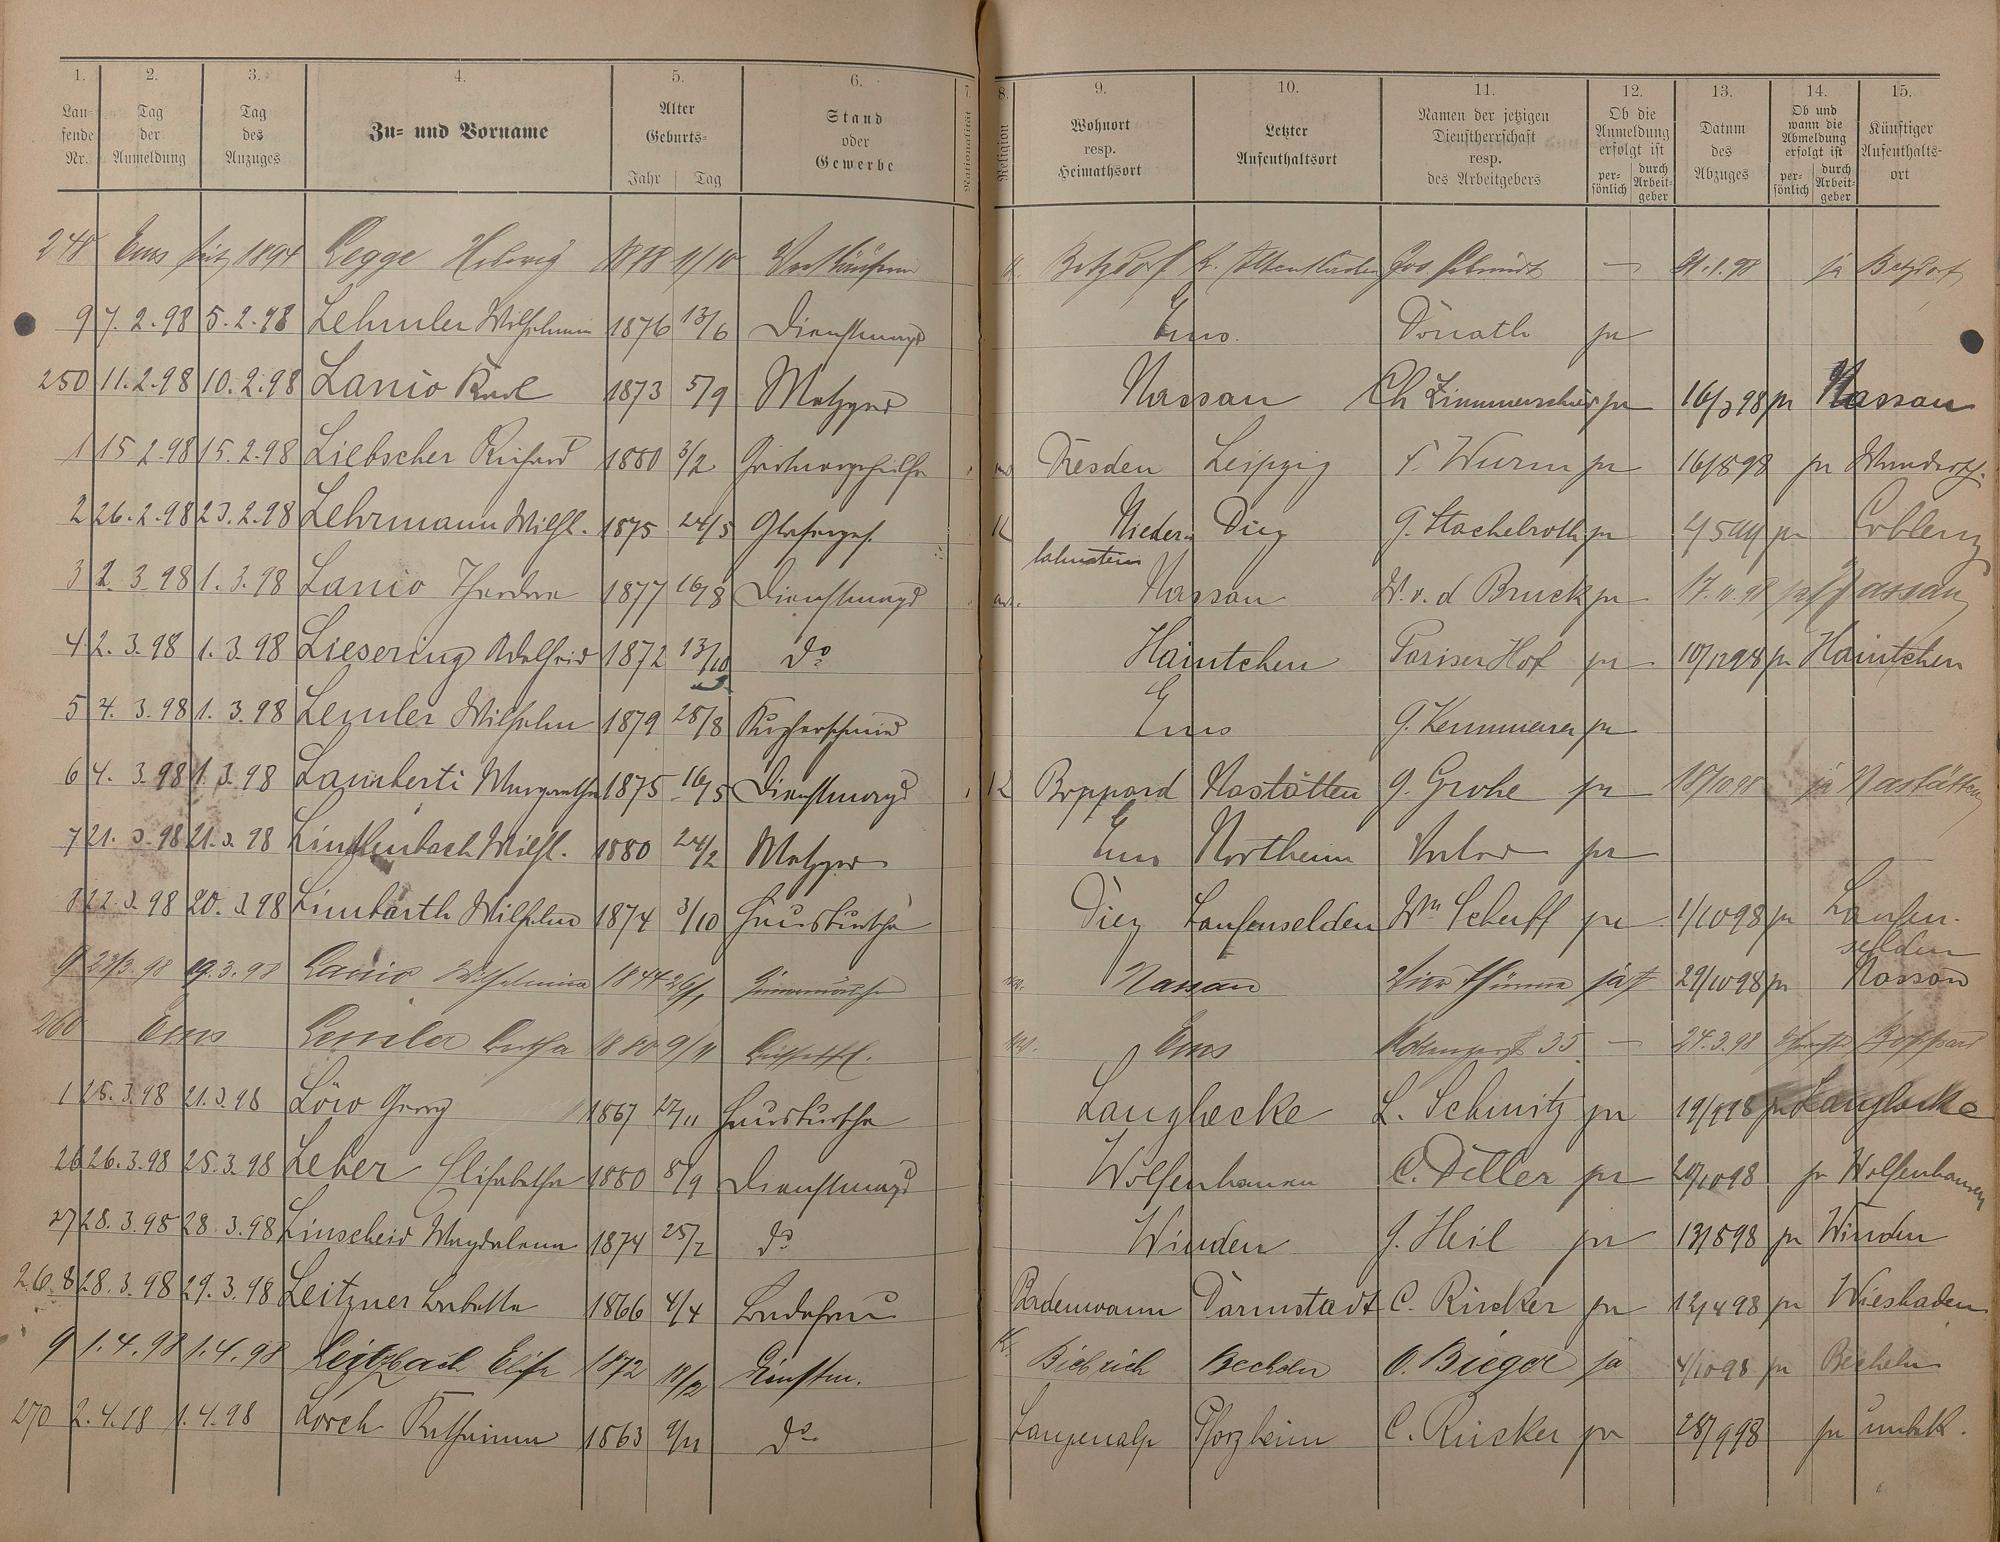 1. 2. 3. 4. 5. 6. 7.
Lau-
fende
Nr.
Tag
der
Anmeldung
Tag
des
Anzuges
Zu- und Vorname
Alter
Geburts-
Jahr Tag
Stand
oder
Gewerbe
Nationalität
8. 9. 10. 11. 12. 13. 14. 15.
Religion
Wohnort
resp.
Heimathsort
Letzter
Aufenthaltsort
Namen der jetzigen
Dienstherrschaft
resp.
des Arbeitgebers
Ob die
Anmeldung
erfolgt ist
per-
sönlich
durch
Arbeit-
geber
Datum
des
Abzuges
Ob und
wann die
Abmeldung
erfolgt ist
per-
sönlich
durch
Arbeit-
geber
Künftiger
Aufenthalts-
ort
248 Ems seit 1894 Legge Hedwig 1878 11/10 Verkäuferin K. Betzdorf Jos Schmidt — 31.1.98 ja Betzdorf
9 7.2.98 5.2.98 Lehmler Wilhelmin 1876 13/6 Dienstmagd Ems. Donath ja
250 11.2.98 10.2.98 Lanio Karl 1873 5/9 Metzger Nassau Ch Zimmerschied ja 16/3 98 ja Nassau
1 15 2.98 15.2.98 Liebscher Richard 1880 3/2 Gärtnergehilfe Dresden Leipzig F. Wurm ja 16/8 98 ja Wandersch.
2 26.2.98 23.2.98 Lehrmann Wilh. 1875 24/5 Glaserges. K Nieder- Diez G. Stachelroth ja ja Coblenz
lahnstein
3 2.3.98 1.3.98 Lanio Theodora 1877 16/8 Dienstmagd Nassau W.v.d Bruck ja 17.11.98 ja Nassau
4 2.3.98 1.3.98 Liesering 1872 13/10 do Haintchen Pariser Hof ja 10/12 98 ja Haintchen
5 4.3.98 1.3.98 Lemler Wilhelm 1879 28/8 Kupferschmied Ems G. Kemmerer ja
6 4.3.98 1.3.98 Lamberti Margaretha 1875 16/5 Dienstmagd K Boppard Nastätten G. Grohe ja 18/10 98 ja Nastätten
7 21.3.98 21.3.98 Wilh. 1880 24/2 Metzger Ems Northeim ja
8 22.3.98 20.3.98 Limbarth Wilhelm 1874 3/10 Hausbursche Diez Laufenselden Wm Scheuff ja 1/10 98 ja Laufen-
selden
9 23/3.98 19.3.98 Lanio Wilhelmina 1844 26/1 Nassau Vier Thürme ja 29/10 98 ja Nassau
260 Ems Lemler Bertha 1880 9/11 Ems 35 — 24.3.98 Boppard
1 25.3.98 21.3.98 Löw Georg 1867 22/11 Hausbursche Langhecke L. Schmitz ja 19/9 98 ja Langhecke
26 26.3.98 25.3.98 Leber Elisabetha 1880 8/9 Dienstmagd Wolfenhausen C. Deller ja 20/10 98 ja Wolfenhausen
27 28.3.98 28.3.98 Linscheid Magdalena 1874 25/7 do Winden J. Heil ja 13/8 98 ja Winden
26.8 28.3.98 29.3.98 Leitzner Babette 1866 4/4 Badefrau Darmstadt C. Rücker ja 12/4 98 ja Wiesbaden
9 1.4.98 1.4.98 Leitzbach Elise 1872 18/2 Dienstm. K. Biebrich Becheln O. Bieger ja 4/10 98 ja Becheln
270 2.4.98 1.4.98 Lorch Katharina 1863 9/11 do Langenalp Pforzheim C. Rücker ja 28/9 98 ja unbek.